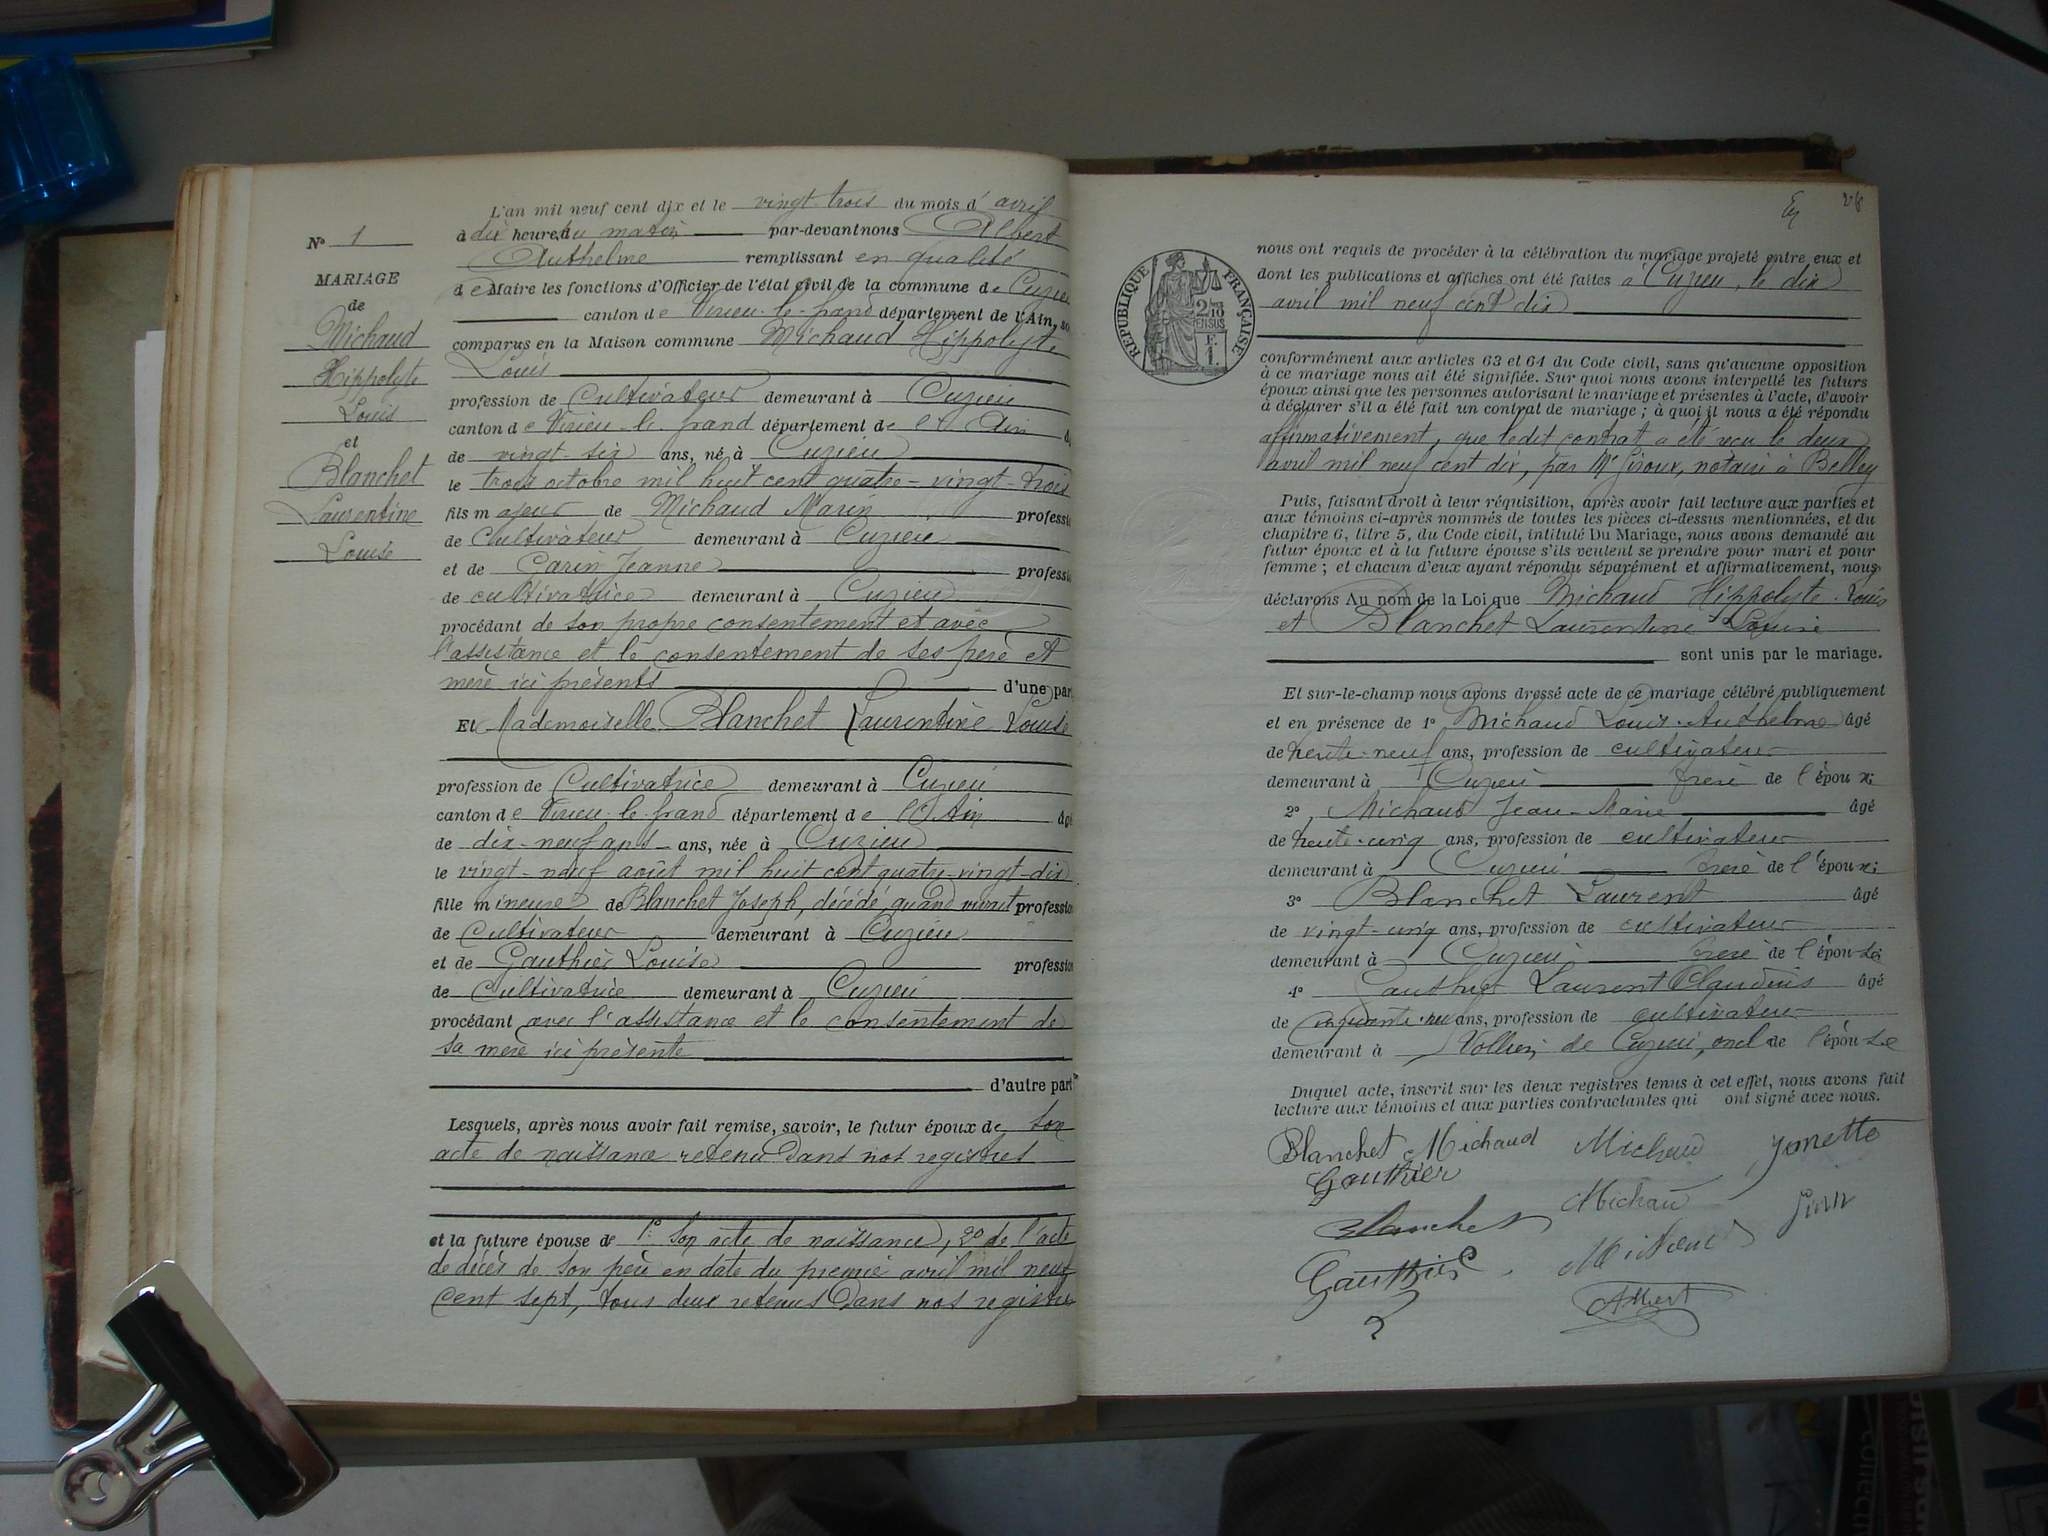 N° 1
MARIAGE
de
Michaud
Hippolyte
Louis
et
Blanchet
Laurentine
Louise
L'an mil neuf cent dix et le vingt-trois du mois d'avril
à dix heures du matin par-devant nous Albert
Anthelme remplissant en qualité
de Maire les fonctions d'Officier de l'état civil de la commune de Cuzieu
canton de Virieu-le-grand département de l'Ain, so
comparus en la Maison commune Michaud Hippolyte
Louis
profession de Cultivateur demeurant à Cuzieu
canton de Virieu-le-grand département de l'Ain
de vingt-six ans, né à Cuzieu
le trois octobre mil huit cent quatre-vingt-trois
fils majeur de Michaud Marin professi
de Cultivateur demeurant à Cuzieu
et de Garin Jeanne professi
de cultivatrice demeurant à Cuzieu
procédant de son propre consentement et avec
l'assistance et le consentement de ses père et
mère ici présents d'une par
Et Mademoiselle Blanchet Laurentine Louise
profession de Cultivatrice demeurant à Cuzieu
canton de Virieu-le-grand département de l'Ain âgé
de dix-neuf ans ans, née à Cuzieu
le vingt-neuf août mil huit cent quatre-vingt-dix
fille mineure de Blanchet Joseph, décédé, quand vivait profession
de Cultivateur demeurant à Cuzieu
et de Gauthier Louise profession
de Cultivatrice demeurant à Cuzieu
procédant avec l'assistance et le consentement de
sa mère ici présente
d'autre part
Lesquels, après nous avoir fait remise, savoir, le futur époux de son
acte de naissance retenu dans nos registres
et la future épouse de 1° son acte de naissance, 2° de l'acte
de décès de son père en date du premier avril mil neuf
cent sept, tous deux retenus dans nos registres
28
RÉPUBLIQUE FRANÇAISE
2/10
EN SUS
F.
1.
nous ont requis de procéder à la célébration du mariage projeté entre eux et
dont les publications et affiches ont été faites à Cuzieu, le dix
avril mil neuf cent dix
conformément aux articles 63 et 64 du Code civil, sans qu'aucune opposition
à ce mariage nous ait été signifiée. Sur quoi nous avons interpellé les futurs
époux ainsi que les personnes autorisant le mariage et présentes à l'acte, d'avoir
à déclarer s'il a été fait un contrat de mariage ; à quoi il nous a été répondu
affirmativement, que ledit contrat a été reçu le deux
avril mil neuf cent dix, par Me Giroux, notaire à Belley
Puis, faisant droit à leur réquisition, après avoir fait lecture aux parties et
aux témoins ci-après nommés de toutes les pièces ci-dessus mentionnées, et du
chapitre 6, titre 5, du Code civil, intitulé Du Mariage, nous avons demandé au
futur époux et à la future épouse s'ils veulent se prendre pour mari et pour
femme ; et chacun d'eux ayant répondu séparément et affirmativement, nous
déclarons Au nom de la Loi que Michaud Hippolyte Louis
et Blanchet Laurentine Louise
sont unis par le mariage.
Et sur-le-champ nous avons dressé acte de ce mariage célébré publiquement
et en présence de 1° Michaud Louis-Anthelme âgé
de trente-neuf ans, profession de cultivateur
demeurant à Cuzieu frère de l'époux
2° Michaud Jean-Marie âgé
de trente-cinq ans, profession de cultivateur
demeurant à Cuzieu frère de l'époux
3° Blanchet Laurent âgé
de vingt-cinq ans, profession de cultivateur
demeurant à Cuzieu frère de l'épouse
4° Gauthier Laurent Claudius âgé
de cinquante ans, profession de cultivateur
demeurant à Vollien de Cuzieu, oncle de l'épouse
Duquel acte, inscrit sur les deux registres tenus à cet effet, nous avons fait
lecture aux témoins et aux parties contractantes qui ont signé avec nous.
Blanchet Michaud Michaud
Gauthier Michaud
Blanchet
Gauthier Michaud
Albert